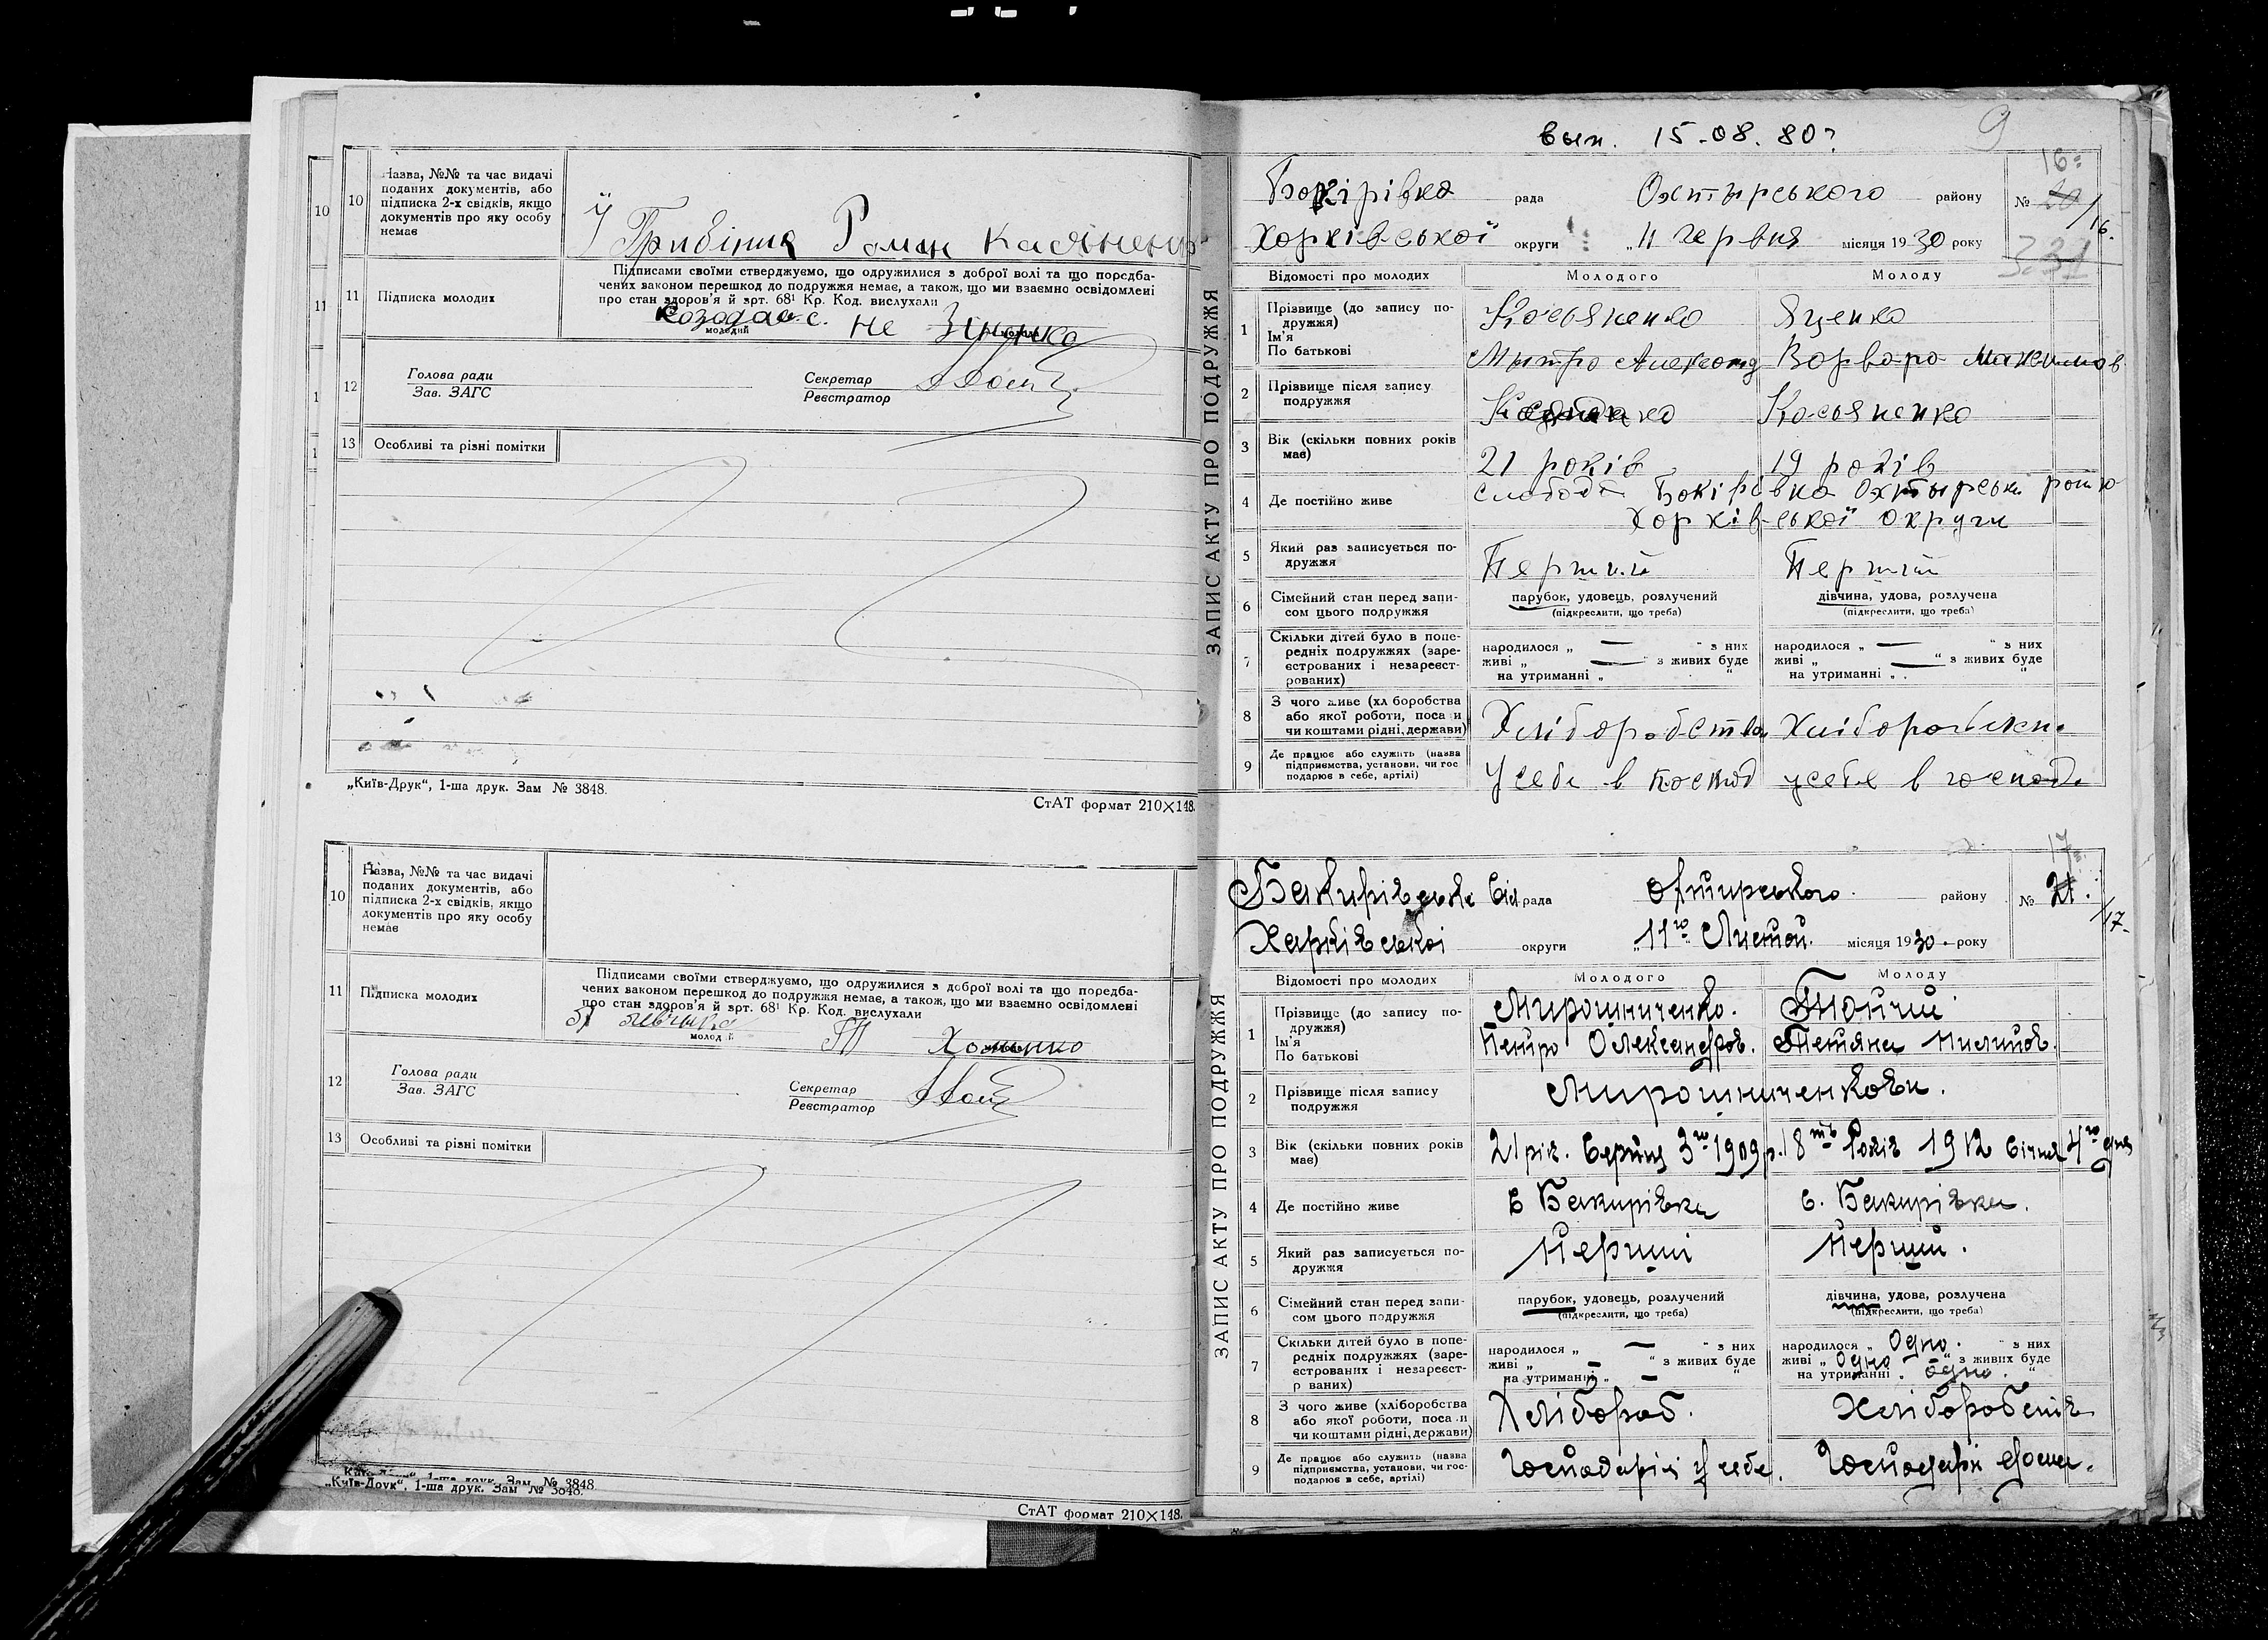 10
Назва, №№ та час видачі
поданих документів, або
підписка 2-х свідків, якщо
документів про яку особу
немає
Роман
11
Підписка молодих
Підписами своїми стверджуємо, що одружилися з доброї волі та що передба-
чених законом перешкод до подружжя немає, а також, що ми взаємно освідомлені
про стан здоров'я й арт. 68¹ Кр. Код. вислухали
молодий
12
Голова ради
Зав. ЗАГС
Секретар
Реєстратор
13
Особливі та різні помітки
„Київ-Друк“, 1-ша друк. Зам № 3848.
СтАТ формат 210×148.
10
Назва, №№ та час видачі
поданих документів, або
підписка 2-х свідків, якщо
документів про яку особу
немає
11
Підписка молодих
Підписами своїми стверджуємо, що одружилися з доброї волі та що передба-
чених законом перешкод до подружжя немає, а також, що ми взаємно освідомлені
про стан здоров'я й арт. 68¹ Кр. Код. вислухали
12
Голова ради
Зав. ЗАГС
Секретар
Реєстратор
13
Особливі та різні помітки
„Київ-Друк“, 1-ша друк. Зам № 3848.
СтАТ формат 210×148.
вып. 15.08.80г
9
ЗАПИС АКТУ ПРО ПОДРУЖЖЯ
рада Охтырського району № 16
Харківської округи „11 червня місяця 1930 року
331
Відомості про молодих Молодого Молоду
1 Прізвище (до запису по-
дружжя)
Ім'я
По батькові
Косьяненко Яценко
Мытро Варвара Максимов
2 Прізвище після запису
подружжя
Косьяненко
3 Вік (скільки повних років
має)
21 років 19 років
4 Де постійно живе
слобода Бокірівка
Харківської округи
5 Який раз записується по-
дружжя
Перший Перший
6 Сімейний стан перед запи-
сом цього подружжя
парубок, удовець, розлучений дівчина, удова, розлучена
(підкреслити, що треба) (підкреслити, що треба)
7 Скільки дітей було в попе-
редніх подружжях (заре-
єстрованих і незареєст-
рованих)
народилося „ — “ з них народилося „ — “ з них
живі „ — “ з живих буде живі „ — “ з живих буде
на утриманні „ “ на утриманні „ “
8 З чого живе (хліборобства
або якої роботи, посади
чи коштами рідні, держави)
9 Де працює або служить (назва
підприємства, установи, чи гос
подарює в себе, артілі)
у себе в у себе в господ.
ЗАПИС АКТУ ПРО ПОДРУЖЖЯ
рада Охтирського району № 21. 17
Харківської округи „11го Листоп. місяця 1930 року
Відомості про молодих Молодого Молоду
1 Прізвище (до запису по-
дружжя)
Ім'я
По батькові
Мирошниченко.
Петро Олександров. Тетяна
2 Прізвище після запису
подружжя
Мирошниченкови.
3 Вік (скільки повних років
має)
21 рік. Серпня 3го 1909 р. 18ть Років 1912 Січня 4го дня
4 Де постійно живе
с Бакирівка с. Бакирівка.
5 Який раз записується по-
дружжя
Перший Перший.
6 Сімейний стан перед запи-
сом цього подружжя
парубок, удовець, розлучений дівчина, удова, розлучена
(підкреслити, що треба) (підкреслити, що треба)
7 Скільки дітей було в попе-
редніх подружжях (заре-
єстрованих і незареєст-
рованих)
народилося „ — “ з них народилося „ Одно. “ з них
живі „ — “ з живих буде живі „ Одно “ з живих буде
на утриманні „ — “ на утриманні „ одно. “
8 З чого живе (хліборобства
або якої роботи, посади
чи коштами рідні, держави)
Хлібороб.
9 Де працює або служить (назва
підприємства, установи, чи гос-
подарює в себе, артілі)
у себе. дома.